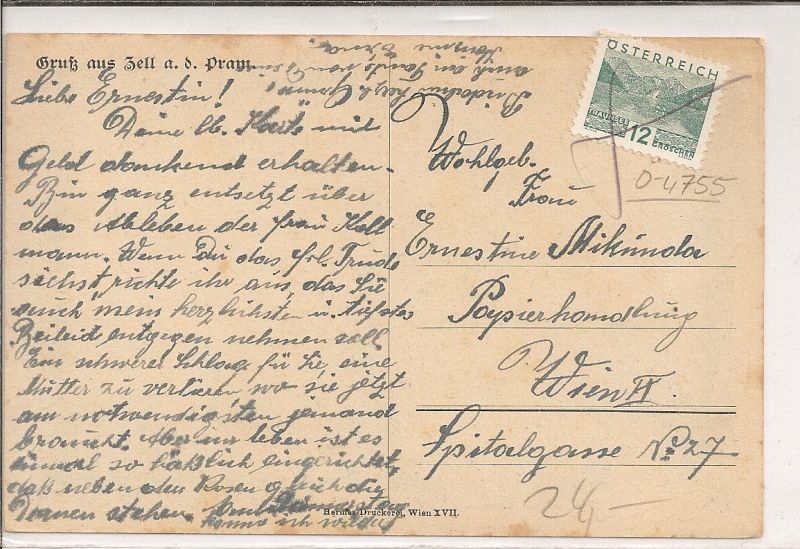 Gruß aus Zell a. d. Pram
Liebe Ernestin!
Deine lb. Karte mit
Geld dankend erhalten.
Bin ganz entsetzt über
das Ableben der Frau Kell
mann. Wenn Du das Frl. Trude
siehst richte ihr aus, das Sie
auch mein herzlichsten u. tiefstes
Beileid entgegen nehmen soll
Ein schwerer Schlag für Sie, eine
Mutter zu verlieren wo sie jetzt
am notwendigsten jemand
braucht. Aber im Leben ist es
einmal so häßlich eingerichtet,
daß neben den Rosen gleich die
Dornen stehen. Donnerstag
komme ich wieder
ÖSTERREICH
12
GROSCHEN
Wohlgeb.
Frau
D-4755
Ernestine Mikunda
Papierhandlung
Wien IX.
Spitalgasse No 27
24,-
Hermes-Druckerei, Wien XVII.